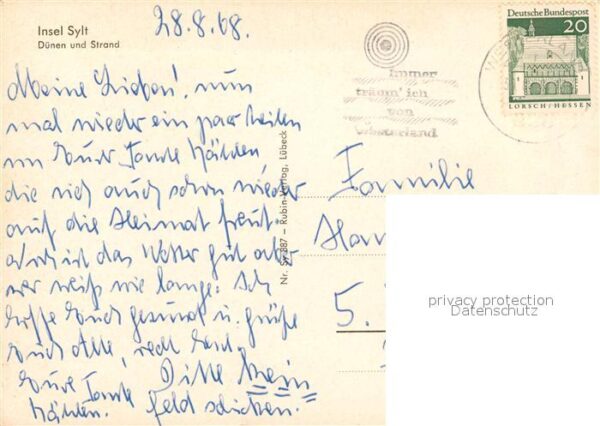 Insel Sylt
Dünen und Strand
28.8.68.
Meine Lieben! nun
mal wieder ein paar Zeilen
von Eurer Tante Käthen
die sich auch schon wieder
auf die Heimat freut.
ist das Wetter gut aber
wer weiß wie lange: Ich
hoffe Euch gesund u. grüße
Euch Alle, recht
Eure Tante
Käthen.
Bitte kein
Geld schicken.
Nr. Sy 887 – Rubin-Verlag, Lübeck
Immer
träum' ich
von
Westerland
Deutsche Bundespost
20
LORSCH/HESSEN
Familie
5.
privacy protection
Datenschutz